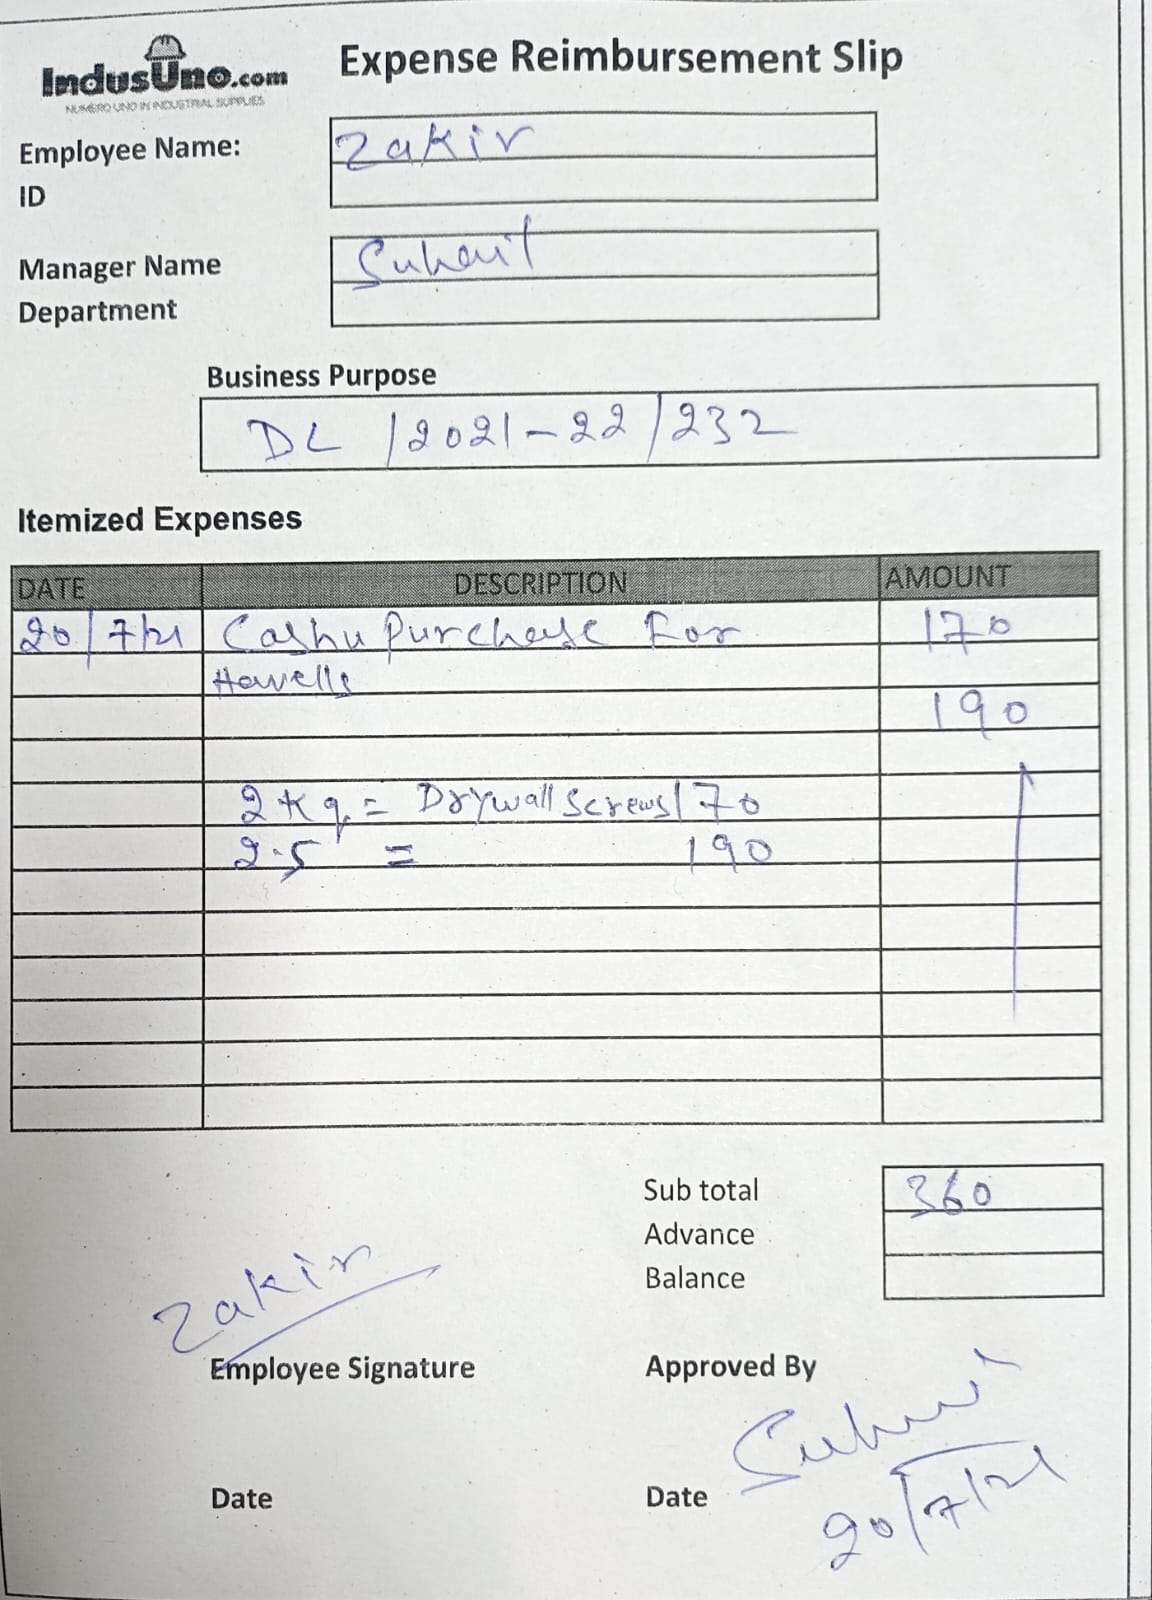 IndusUno.com
NUMERO UNO IN INDUSTRIAL SUPPLIES
Expense Reimbursement Slip
Employee Name: Zakir
ID
Manager Name Suhail
Department
Business Purpose
DL /2021-22/232
Itemized Expenses
DATE DESCRIPTION AMOUNT
20/7/21 Cash Purchase For 170
Havells
190
2 kg = Drywall Screws 170
2.5 = 190
Sub total 360
Advance
Balance
Zakir
Employee Signature Approved By
Suhail
Date Date
20/7/21